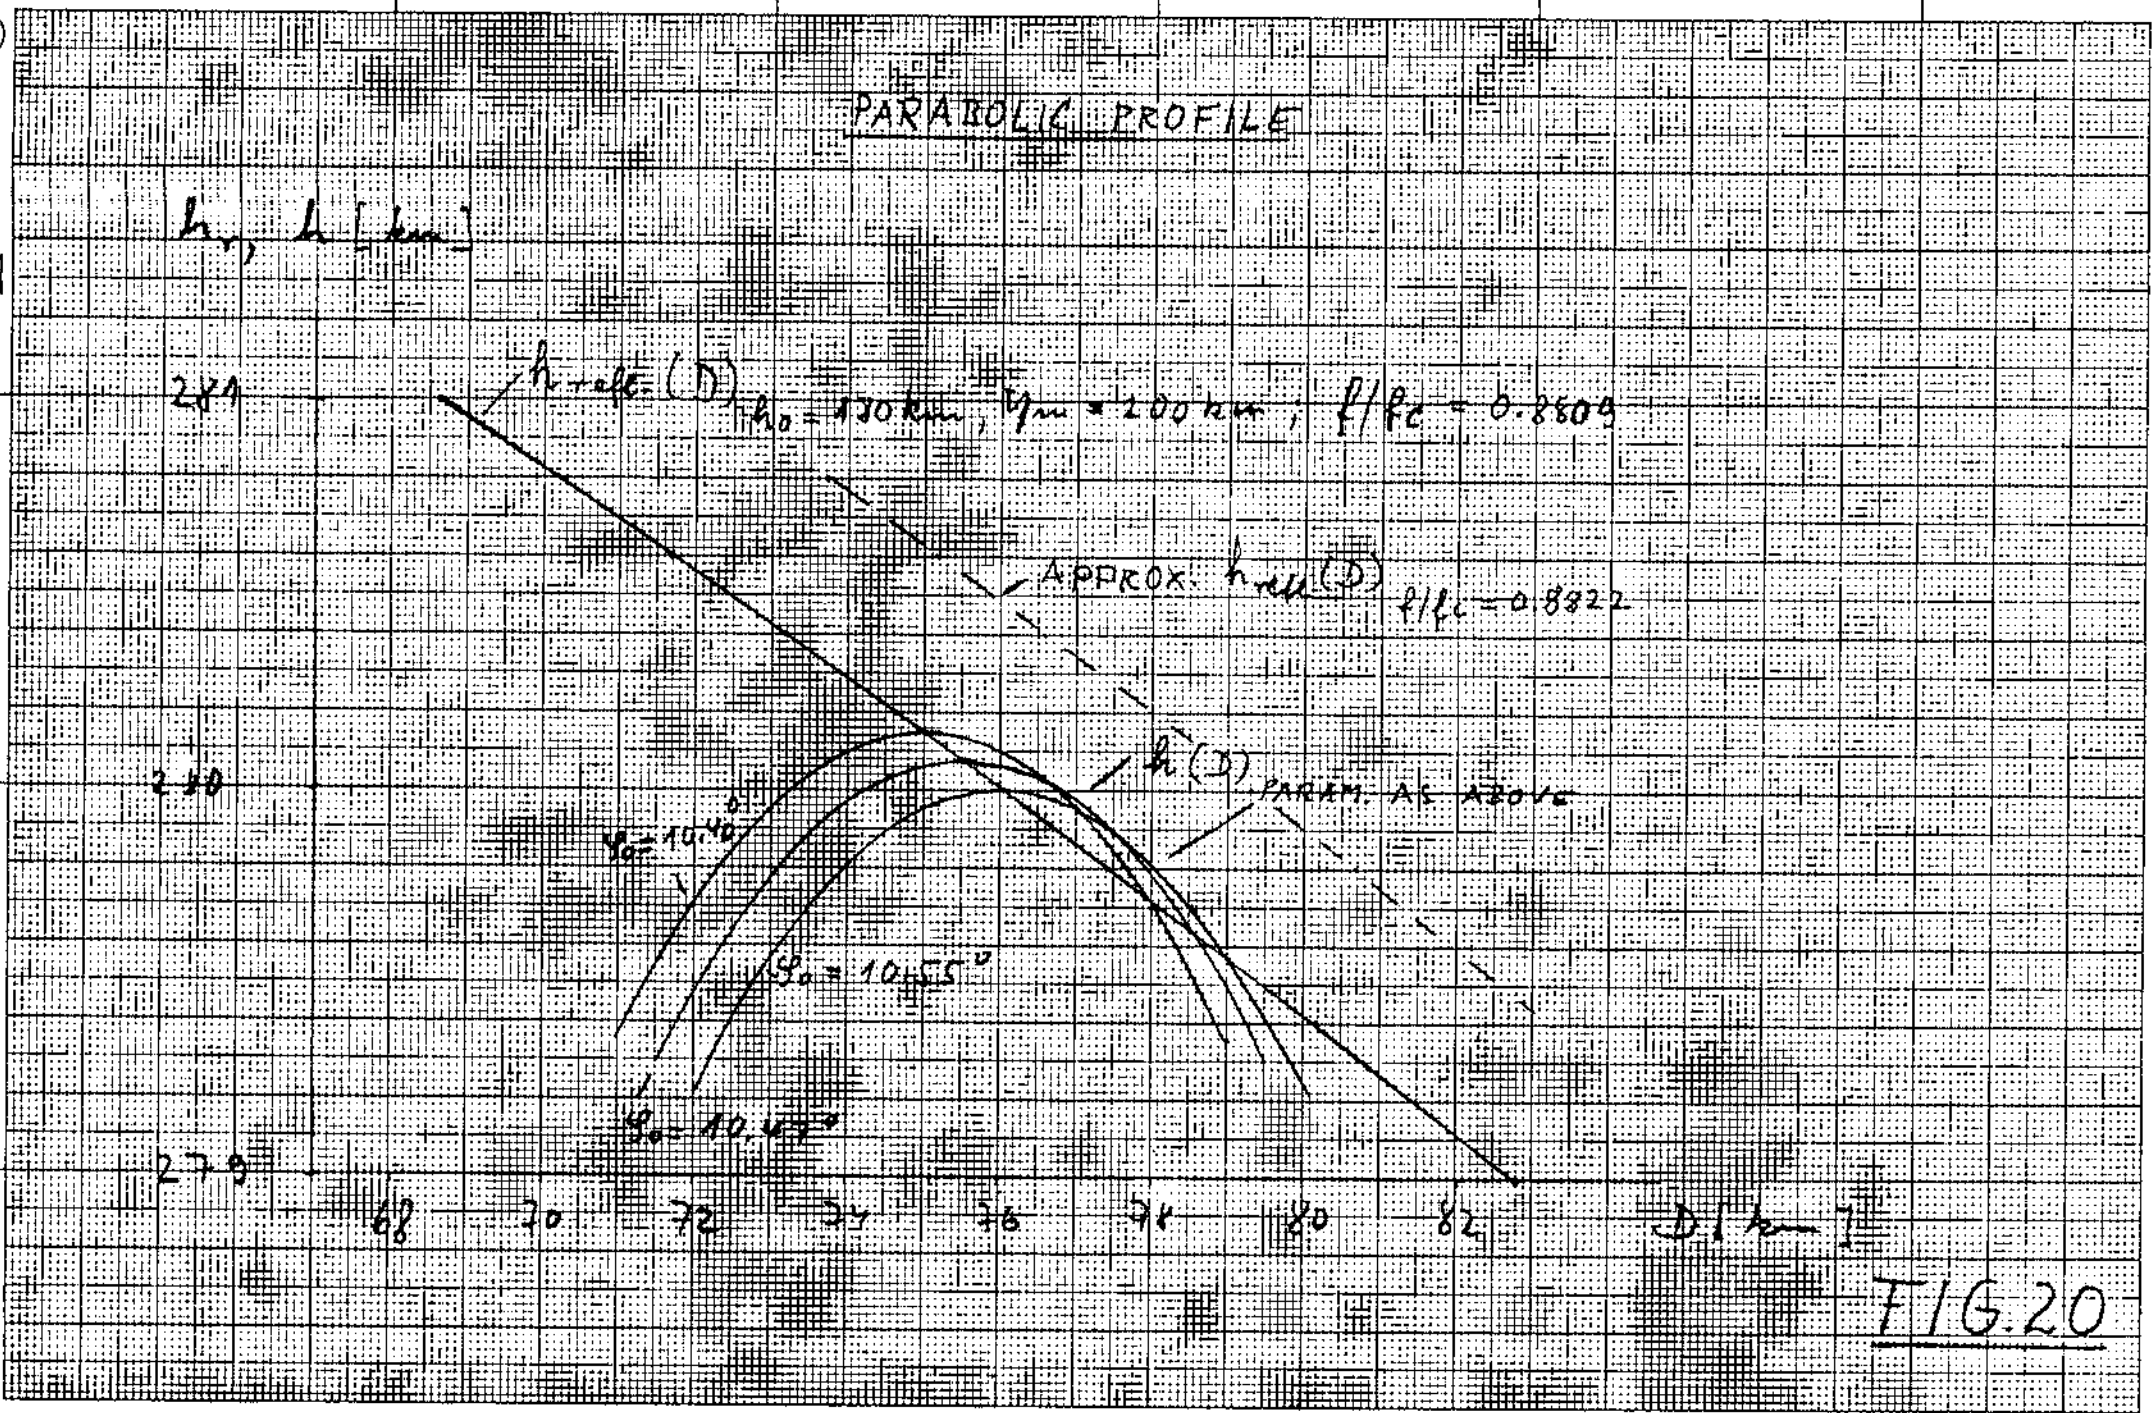 PARABOLIC PROFILE
hr, h [km]
281
h refl. (D)
h0 = 180 km, ym = 200 km ; f/fc = 0.8809
APPROX. h refl (D)
f/fc = 0.8822
h (D)
280
PARAM. AS ABOVE
φ0 = 10.40°
φ0 = 10.55°
φ0 = 10.47°
279
68 70 72 74 76 78 80 82 D [km]
FIG. 20